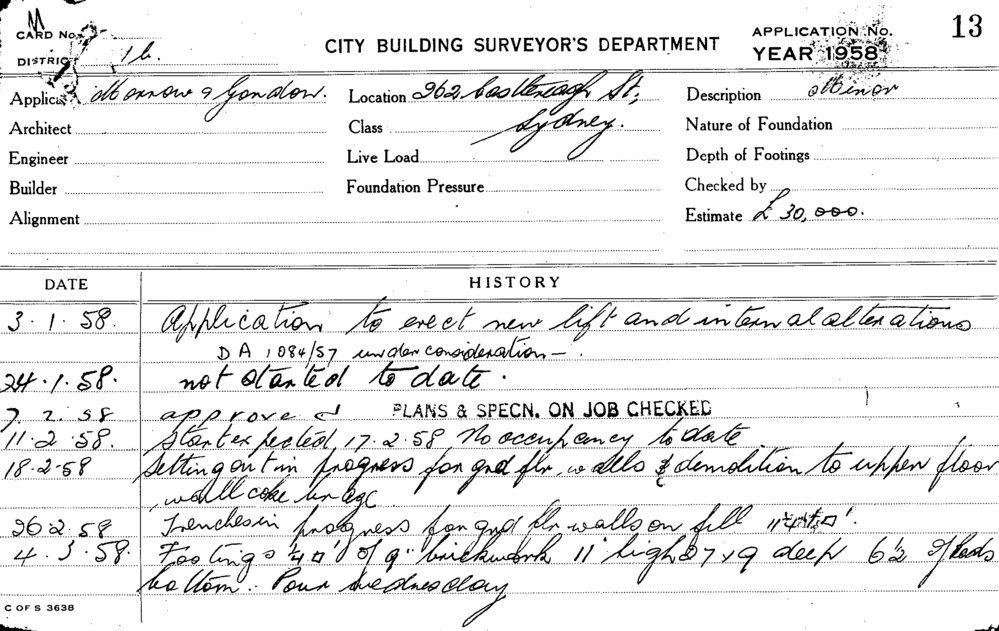 M
CARD No.
CITY BUILDING SURVEYOR'S DEPARTMENT
APPLICATION No.
13
DISTRICT 16.
YEAR 1958
Applicant Morrow & Gordon.
Location 262 Castlereagh St,
Description Minor
Architect
Class Sydney.
Nature of Foundation
Engineer
Live Load
Depth of Footings
Builder
Foundation Pressure
Checked by
Alignment
Estimate £ 30,000.
DATE
HISTORY
3.1.58. Application to erect new lift and internal alterations
DA 1084/57 under consideration —.
24.1.58. not started to date.
7.2.58 approved PLANS & SPECN. ON JOB CHECKED
11.2.58. Start expected 17.2.58 No occupancy to date
18.2.58 Setting out in progress for grd flr, walls & demolition to upper floor
wall
26 2.58 Trenches in progress for grd flr walls on fill
4.3.58. Footings of 9" brickwork 11' high 27 x 9 deep 6 ½
bottom. Pour wednesday
C OF S 3638